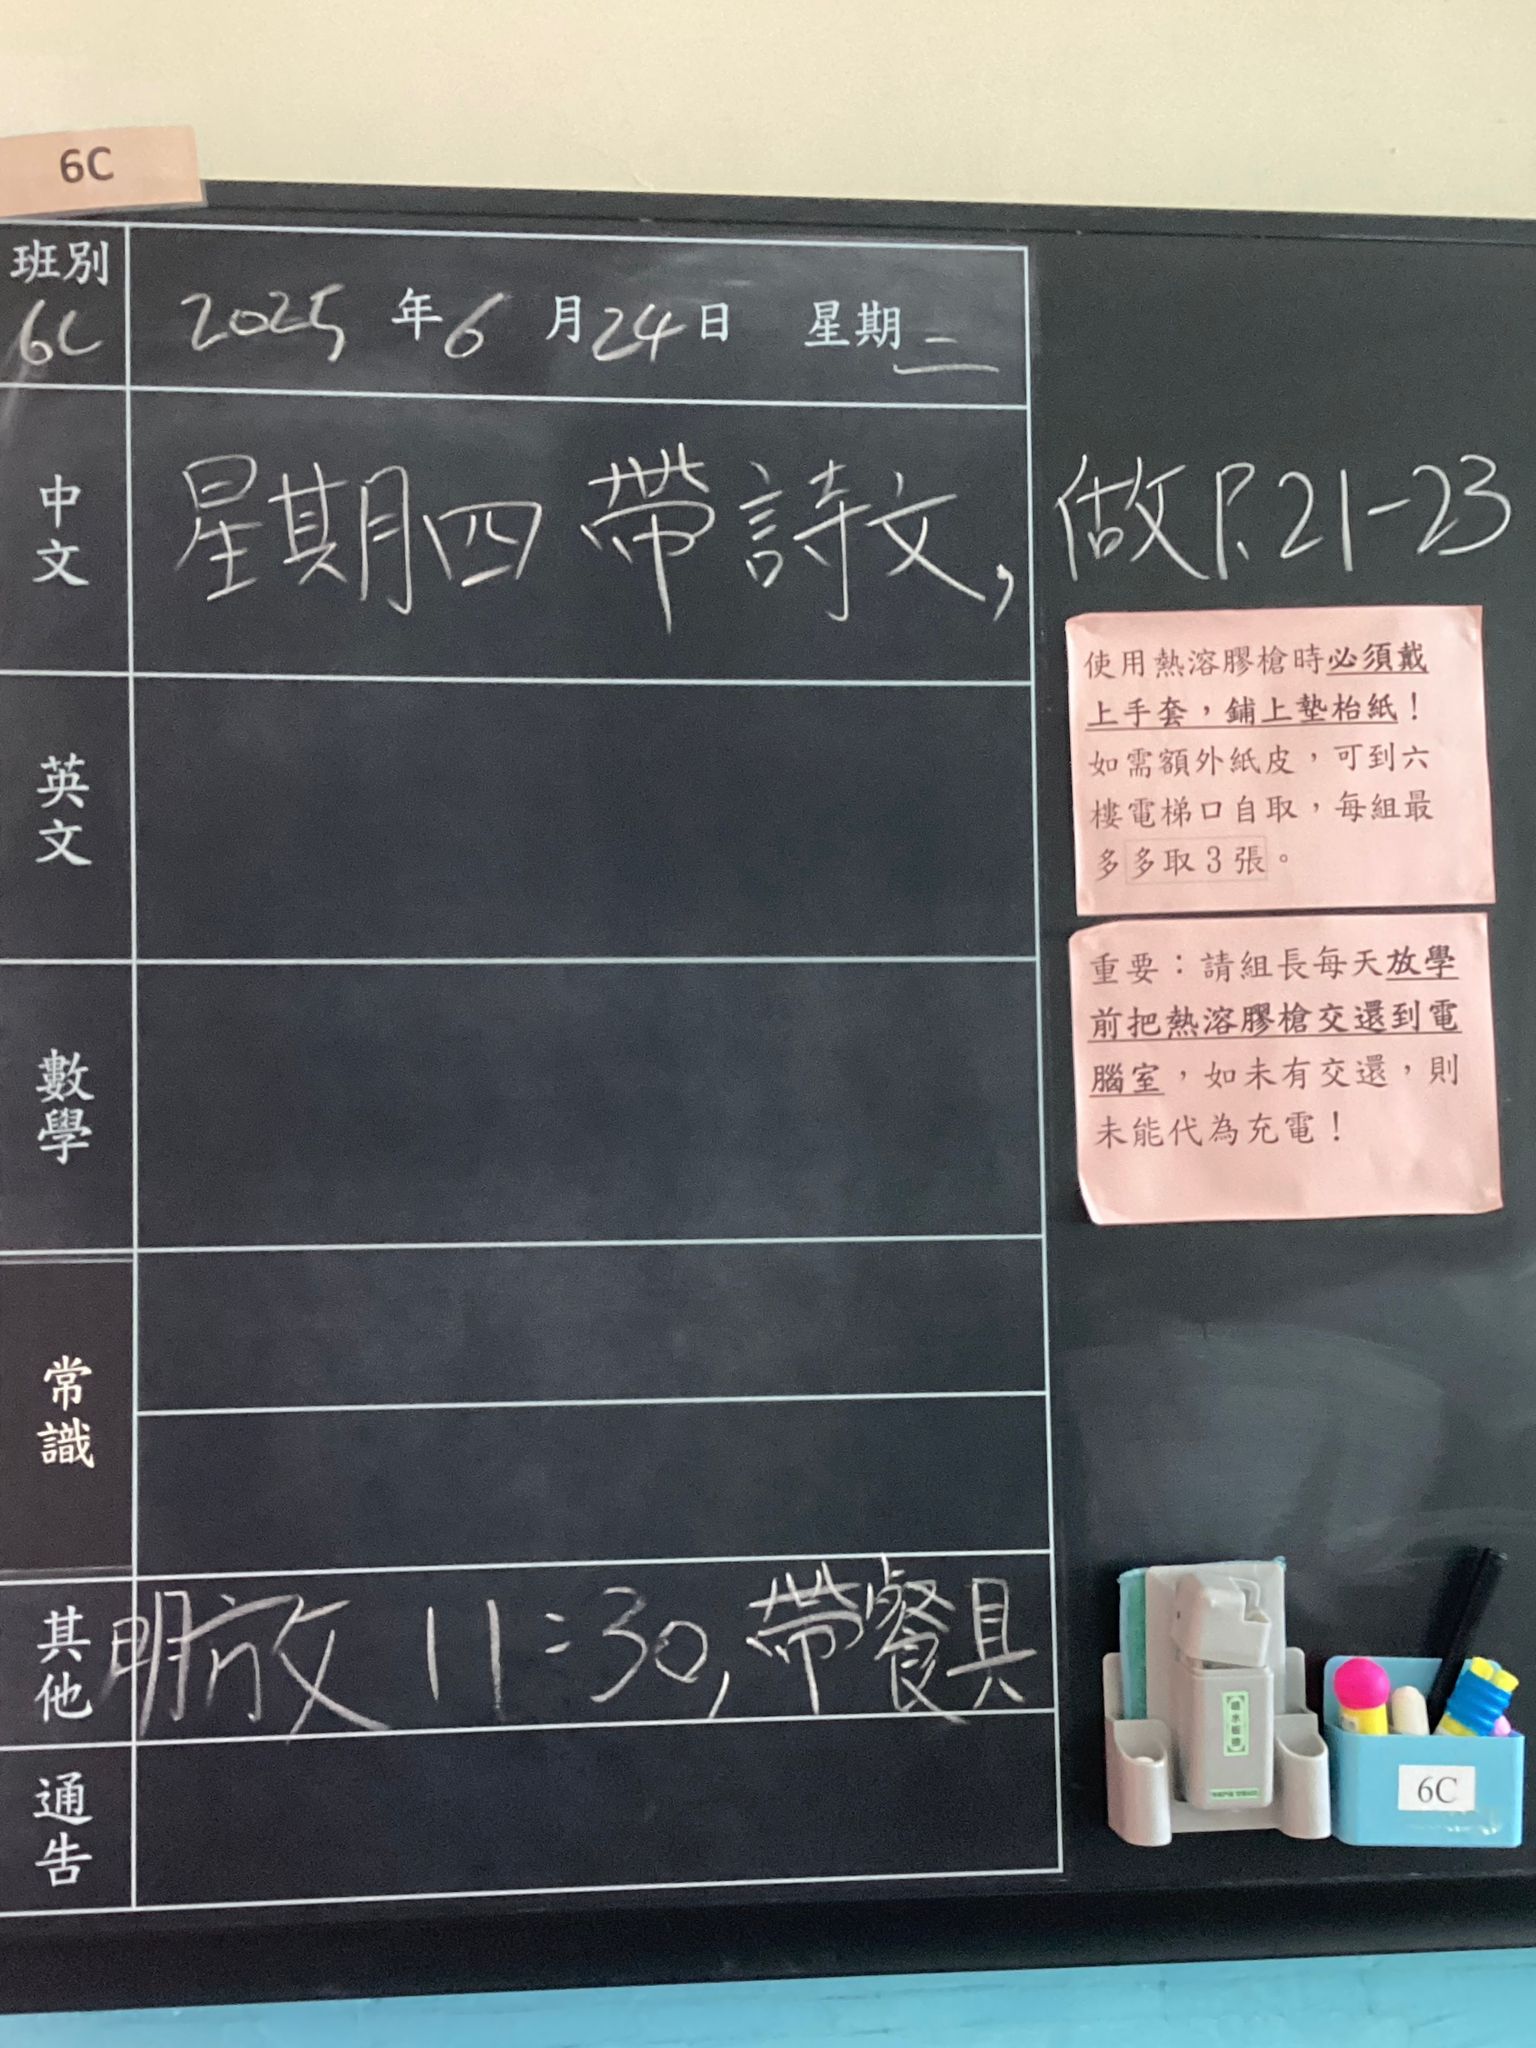 6C
班別
6C
2025 年 6 月 24 日 星期二
中文
星期四 帶詩文, 做P.21-23
使用熱溶膠槍時必須戴
上手套，鋪上墊枱紙！
如需額外紙皮，可到六
樓電梯口自取，每組最
多多取3張。
英文
重要：請組長每天放學
前把熱溶膠槍交還到電
腦室，如未有交還，則
未能代為充電！
數學
常識
其他
明放 11:30, 帶餐具
通告
6C